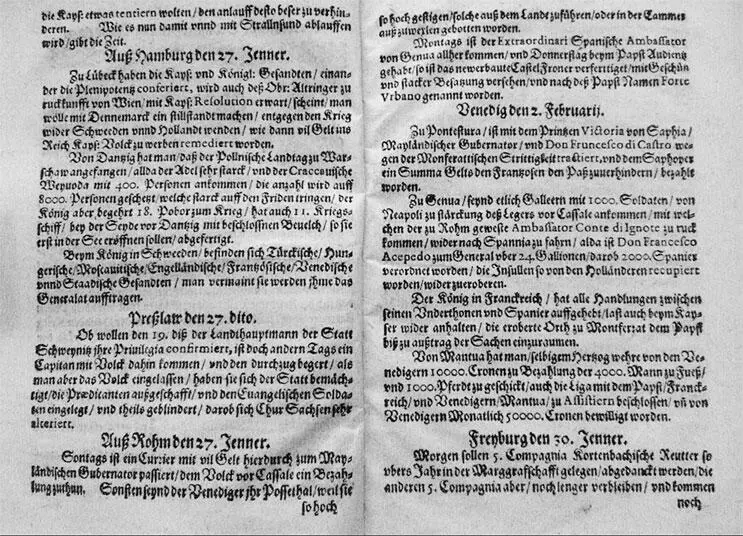 die Kays: etwas tentiern wolten / den anlauff desto besser zu verhin-
deren. Wie es nun damit vnnd mit Stralsund ablauffen
wird / gibt die Zeit.
Auß Hamburg den 27. Jenner.
Zu Lübeck haben die Kays: vnd Königl: Gesandten / einan-
der die Plenipotentz conferiert, wird auch deß Obr: Altringer zu
ruckkunfft von Wien / mit Kays: Resolution erwart / scheint / man
wolle mit Dennemarck ein stillstandt machen / entgegen den Krieg
wider Schweeden vnnd Hollandt wenden / wie dann vil Gelt ins
Reich Kays: Volck zu werben remediert worden.
Von Dantzig hat man / daß der Pollnische Landtag zu War-
schaw angefangen / allda der Adel sehr starck / vnd der Craccauische
Weyuoda mit 400. Personen ankommen / die anzahl wird auff
8000. Personen geschetzt, welche starck auff den Friden tringen / der
König aber begehrt 18. Pobor zum Krieg / hat auch 11. Kriegs-
schiff / bey der Seyde vor Dantzig mit beschlossnen Beuelch / so sie
erst in der See eröffnen sollen / abgefertigt.
Beym König in Schweeden / befinden sich Türckische / Hun-
gerische / Moscauitische / Engelländische / Frantzösische / Venedische
vnnd Staadische Gesandten / man vermaint sie werden jhme das
Generalat aufftragen.
Preßlaw den 27. dito.
Ob wollen den 19. diß der Landthauptmann der Statt
Schweynitz jhre Priuilegia confirmiert, ist doch andern Tags ein
Capitan mit Volck dahin kommen / vnd den durchzug begert / als
man aber das Volck eingelassen / haben sie sich der Statt bemäch-
tigt / die Prædicanten außgeschafft / vnd den Euangelischen Solda-
ten eingelegt / vnd theils geblindert / darob sich Chur Sachsen sehr
alteriert.
Auß Rohm den 27. Jenner.
Sontags ist ein Currier mit vil Gelt hierdurch zum May-
ländischen Gubernator passiert / dem Volck vor Cassale ein Bezah-
lung zuthun. Sonsten seynd der Venediger jhr Possethal / weil sie
so hoch
so hoch gestigen / solche auß dem Landt zuführen / oder in der Cammer
außzuwexlen gebotten worden.
Montags ist der Extraordinari Spanische Ambassator
von Genua allher kommen / vnd Donnerstag beym Papst Audientz
gehabt / so ist das newerbaute Castel Froner verfertiget / mit Geschütz
vnd stacker Besatzung versehen / vnd nach deß Papst Namen Forte
Vrbano genannt worden.
Venedig den 2. Februarij.
Zu Pontestura / ist mit dem Printzen Victoria von Saphia /
Mayländischer Gubernator / vnd Don Funcesco di Castro we-
gen der Monferattischen Strittigkeit tractiert, vnd dem Saphoyer
ein Summa Gelts den Frantzosen den Paß zuuerhindern / bezahlt
worden.
Zu Genua / seynd etlich Galleern mit 1000. Soldaten / von
Neapoli zu stärckung deß Legers vor Cassale ankommen / mit wel-
chen der zu Rohm geweste Ambassator Conte di Ignote zu ruck
kommen / wider nach Spannia zu fahrn / alda ist Don Francesco
Acepedo zum General vber 24. Gallionen / darob 2000. Spanier
verordnet worden / die Insullen so von den Holländeren recupiert
worden / wider zuerobern.
Der König in Franckreich / hat alle Handlungen zwischen
seinen Vnderthonen vnd Spanier auffgehebt / last auch beym Kay-
ser wider anhalten / die eroberte Orth zu Montferrat dem Papst
biß zu außtrag der Sachen einzuraumen.
Von Mantua hat man / selbigem Hertzog wehre von den Ve-
nedigern 10000. Cronen zu Bezahlung der 4000. Mann zu Fueß /
vnd 1000. Pferdt zu geschickt / auch die Liga mit dem Papst / Franck-
reich / vnd Venedigern / Mantua / zu Assistiern beschlossen / vñ von
Venedigern Monatlich 50000. Cronen bewilligt worden.
Freyburg den 30. Jenner.
Morgen sollen 5. Compagnia Kortenbachische Reutter so
vbers Jahr in der Marggrafschafft gelegen / abgedanckt werden / die
anderen 5. Compagnia aber / noch lenger verbleiben / vnd kommen
noch